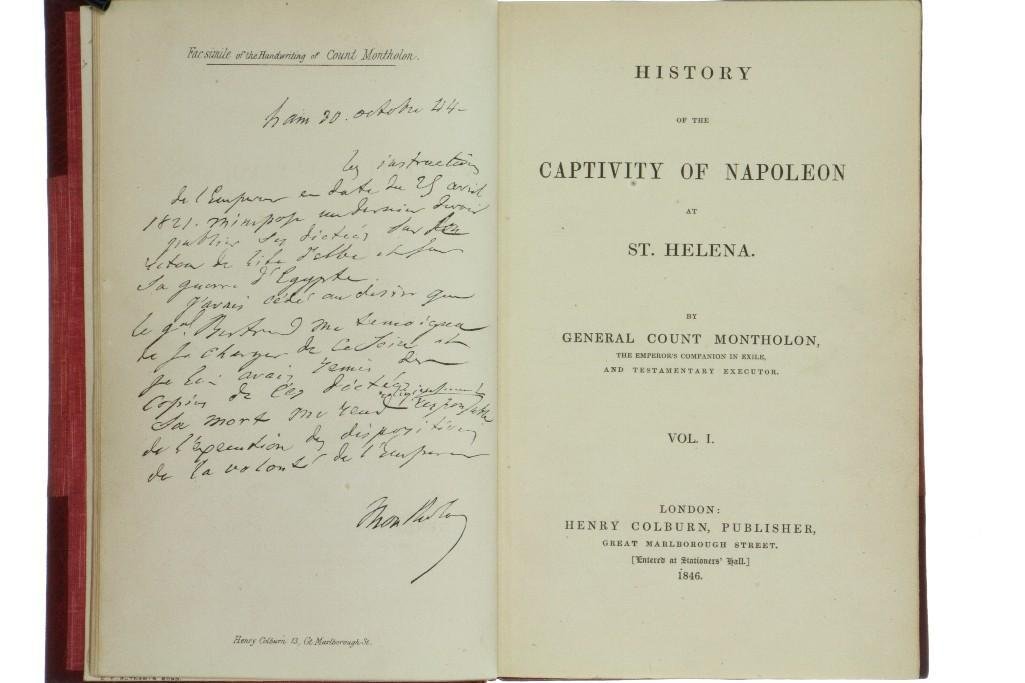 Fac simile of the Handwriting of Count Montholon.
ham 30. octobre 44-
les instructions
de l'Empereur en date du 25 avril
1821. m'impose un dernier devoir
publier ses dictées sur son
retour de l'ile d'Elbe et sur
sa guerre d'Egypte.
J'avais cédé au desir que
le gal Bertrand me temoigna
de se charger de ce soin et
je lui avais remis des
copies de ces dictées
sa mort me rend religieusement responsable
de l'execution des dispositions
de la volonté de l'Empereur
Montholon
Henry Colburn 13, Gt. Marlborough-St.
HISTORY
OF THE
CAPTIVITY OF NAPOLEON
AT
ST. HELENA.
BY
GENERAL COUNT MONTHOLON,
THE EMPEROR'S COMPANION IN EXILE,
AND TESTAMENTARY EXECUTOR.
VOL. I.
LONDON:
HENRY COLBURN, PUBLISHER,
GREAT MARLBOROUGH STREET.
[Entered at Stationers' Hall.]
1846.